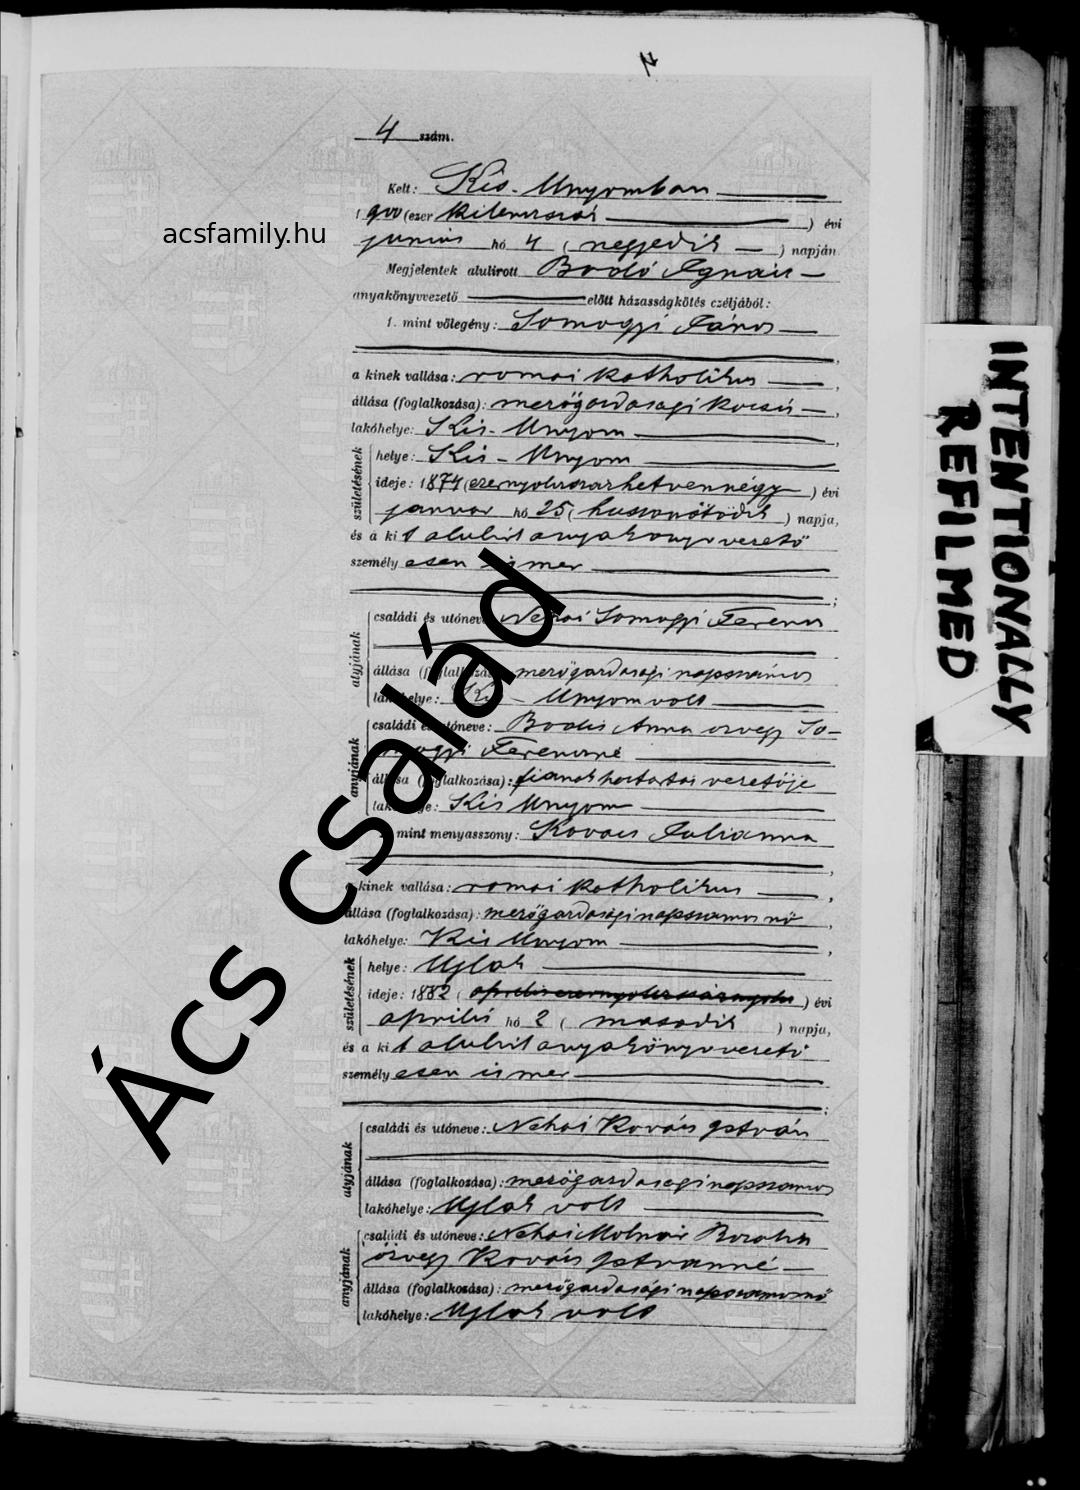 4
4 szám.
Kelt: Kis-Unyomban
1900 (ezer kilenczszáz ) évi
acsfamily.hu
junius hó 4 ( negyedik ) napján
Megjelentek alulirott Bodó Ignácz
anyakönyvvezető előtt házasságkötés czéljából:
1. mint vőlegény: Somogyi János
a kinek vallása: romai katholikus
állása (foglalkozása): mezögazdasagi kocsis
lakóhelye: Kis-Unyom
születésének
helye: Kis-Unyom
ideje: 1874 (ezernyolczszazhetvennégy ) évi
januar hó 25 ( huszonötödik ) napja,
és a kit alulirt anyakönyvvezető
személyesen ismer
atyjának
családi és utóneve: Nehai Somogyi Ferencz
állása (foglalkozása): mezögazdasagi napszámos
lakóhelye: Kis-Unyom volt
anyjának
családi és utóneve: Anna özvegy So-
mogyi Ferenczné
állása (foglalkozása): fianak haztartás vezetöje
lakóhelye: Kis Unyom
2. mint menyasszony: Kovacs Julianna
a kinek vallása: romai katholikus
állása (foglalkozása): mezögazdasági napszamos nö
lakóhelye: Kis Unyom
születésének
helye: Ujlak
ideje: 1882 ( ) évi
április hó 2 ( masodik ) napja,
és a kit alulirt anyakönyvvezetö
személyesen ismer
atyjának
családi és utóneve: Nehai Kovács István
állása (foglalkozása): mezögazdasagi napszamos
lakóhelye: Ujlak volt
anyjának
családi és utóneve: Nehai Molnár
özvegy Kovács Istvanné
állása (foglalkozása): mezögazdasági napszamosnö
lakóhelye: Ujlak volt
Ács család
INTENTIONALLY
REFILMED